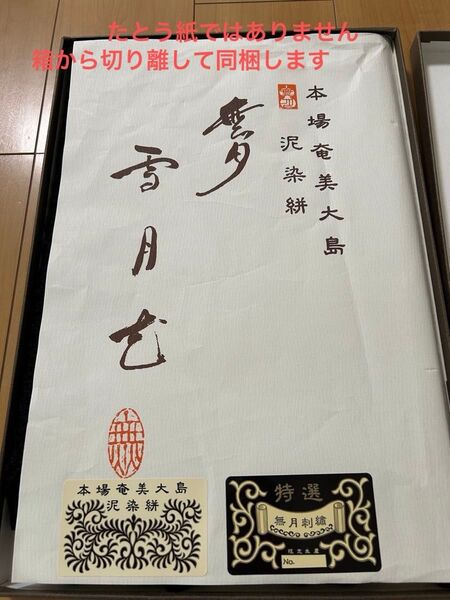 たとう紙ではありません
箱から切り離して同梱します
本場奄美大島
泥染絣
無月
雪月花
無
本場奄美大島
泥染絣
特選
無月刺繍
限定生産
No.